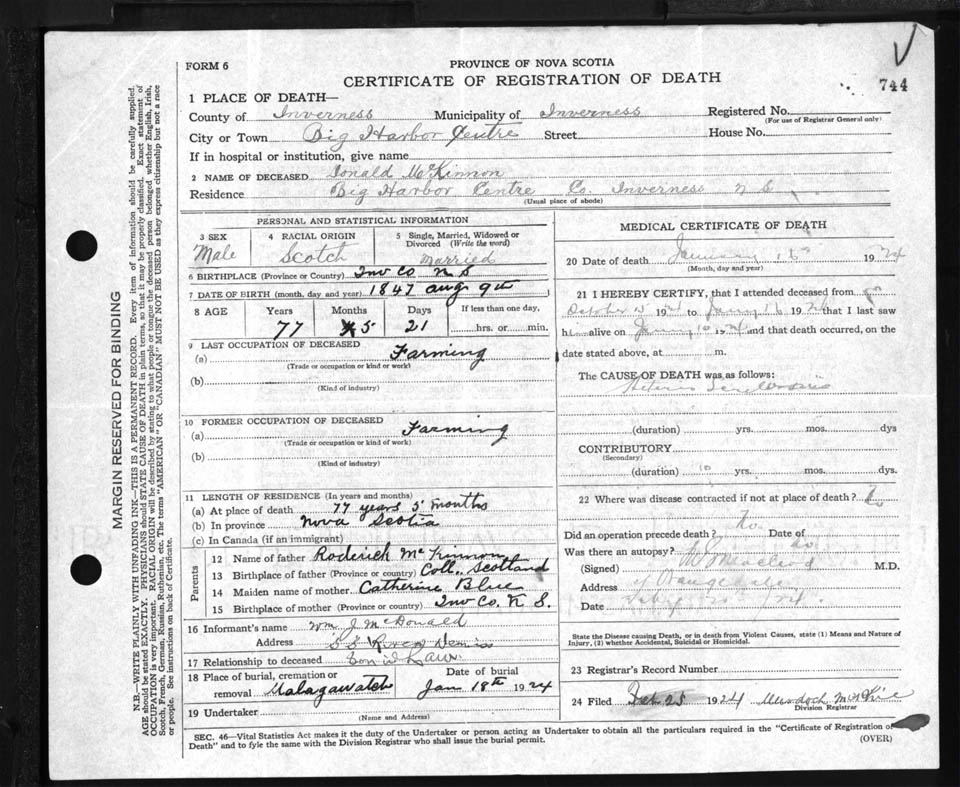 FORM 6
PROVINCE OF NOVA SCOTIA
CERTIFICATE OF REGISTRATION OF DEATH
744
MARGIN RESERVED FOR BINDING
N.B.—WRITE PLAINLY WITH UNFADING INK—THIS IS A PERMANENT RECORD. Every item of information should be carefully supplied.
AGE should be stated EXACTLY. PHYSICIANS should STATE CAUSE OF DEATH in plain terms, so that it may be properly classified. Exact statement of
OCCUPATION is very important. RACIAL ORIGIN will be described by stating to what people or tongue the deceased person belonged whether English, Irish,
Scotch, French, German, Russian, Ruthenian, etc. The terms "AMERICAN" OR "CANADIAN" MUST NOT BE USED as they express citizenship but not a race
or people. See instructions on back of Certificate.
1 PLACE OF DEATH—
County of Inverness Municipality of Inverness Registered No.
(For use of Registrar General only)
City or Town Big Harbor Centre Street House No.
If in hospital or institution, give name
2 NAME OF DECEASED Donald McKinnon
Residence Big Harbor Centre Co. Inverness N S
(Usual place of abode)
PERSONAL AND STATISTICAL INFORMATION
3 SEX Male
4 RACIAL ORIGIN Scotch
5 Single, Married, Widowed or Divorced (Write the word) Married
6 BIRTHPLACE (Province or Country) Inv Co N S
7 DATE OF BIRTH (month, day and year) 1847 Aug 9th
8 AGE Years Months Days If less than one day,
77 5 21 hrs. or min.
9 LAST OCCUPATION OF DECEASED
(a) Farming
(Trade or occupation or kind or work)
(b)
(Kind of industry)
10 FORMER OCCUPATION OF DECEASED
(a) Farming
(Trade or occupation or kind of work)
(b)
(Kind of industry)
11 LENGTH OF RESIDENCE (In years and months)
(a) At place of death 77 years 5 months
(b) In province Nova Scotia
(c) In Canada (if an immigrant)
Parents
12 Name of father Roderick McKinnon
13 Birthplace of father (Province or country) Coll, Scotland
14 Maiden name of mother Catherine Blue
15 Birthplace of mother (Province or country) Inv Co. N S.
16 Informant's name Wm J McDonald
Address River Dennis
17 Relationship to deceased Son in Law
18 Place of burial, cremation or removal Malagawatch Date of burial Jan 18th 1924
19 Undertaker
(Name and Address)
MEDICAL CERTIFICATE OF DEATH
20 Date of death January 16 1924
(Month, day and year)
21 I HEREBY CERTIFY, that I attended deceased from
October 1924 to 16 1924 that I last saw
h alive on 10 1924 and that death occurred, on the
date stated above, at m.
The CAUSE OF DEATH was as follows:
(duration) yrs. mos. dys
CONTRIBUTORY
(Secondary)
(duration) 10 yrs. mos. dys.
22 Where was disease contracted if not at place of death?
Did an operation precede death? No Date of
Was there an autopsy? No
(Signed) McLeod M.D.
Address
Date
State the Disease causing Death, or in death from Violent Causes, state (1) Means and Nature of
Injury, (2) whether Accidental, Suicidal or Homicidal.
23 Registrar's Record Number
24 Filed Feb 25 1924 Murdoch
Division Registrar
SEC. 46—Vital Statistics Act makes it the duty of the Undertaker or person acting as Undertaker to obtain all the particulars required in the "Certificate of Registration of
Death" and to fyle the same with the Division Registrar who shall issue the burial permit.
(OVER)